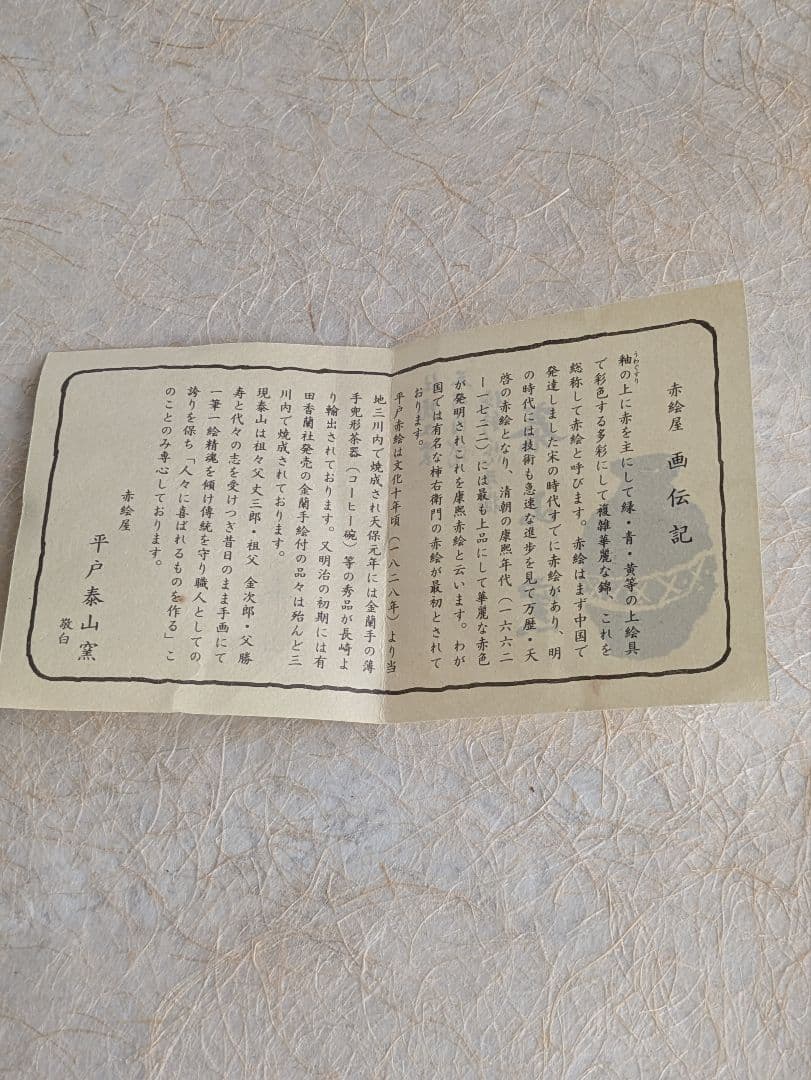 赤絵屋 画伝記
うわぐすり
釉の上に赤を主にして緑・青・黄等の上絵具
で彩色する多彩にして複雑華麗な錦、これを
総称して赤絵と呼びます。赤絵はまず中国で
発達しました宋の時代すでに赤絵があり、明
の時代には技術も急速な進歩を見て万歴・天
啓の赤絵となり、清朝の康熙年代（一六六二
ー一七二二）には最も上品にして華麗な赤色
が発明されこれを康熙赤絵と云います。わが
国では有名な柿右衛門の赤絵が最初とされて
おります。
平戸赤絵は文化十年頃（一八二八年）より当
地三川内で焼成され天保元年には金蘭手の薄
手兜形茶器（コーヒー碗）等の秀品が長崎よ
り輸出されております。又明治の初期には有
田香蘭社発売の金蘭手絵付の品々は殆んど三
川内で焼成されております。
現泰山は祖々父丈三郎・祖父 金次郎・父勝
寿と代々の志を受けつぎ昔日のまま手画にて
一筆一絵精魂を傾け伝統を守り職人としての
誇りを保ち「人々に喜ばれるものを作る」こ
のことのみ専心しております。
赤絵屋
平戸泰山窯
敬白